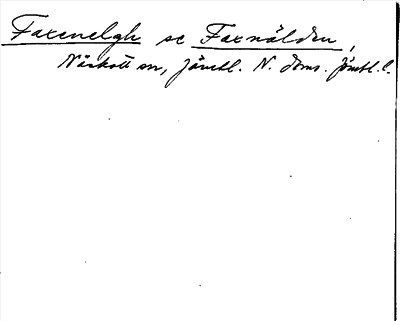 Faxenelgh se Faxnälden,
Näskott sn, Jämtl. N. doms. Jämtl. l.